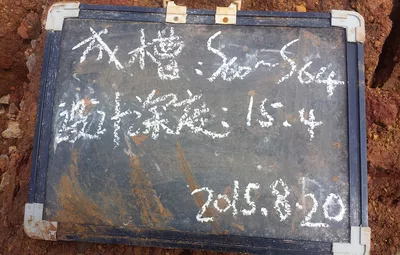 成槽：S60~S64
设计深度：15.4
2015.8.20